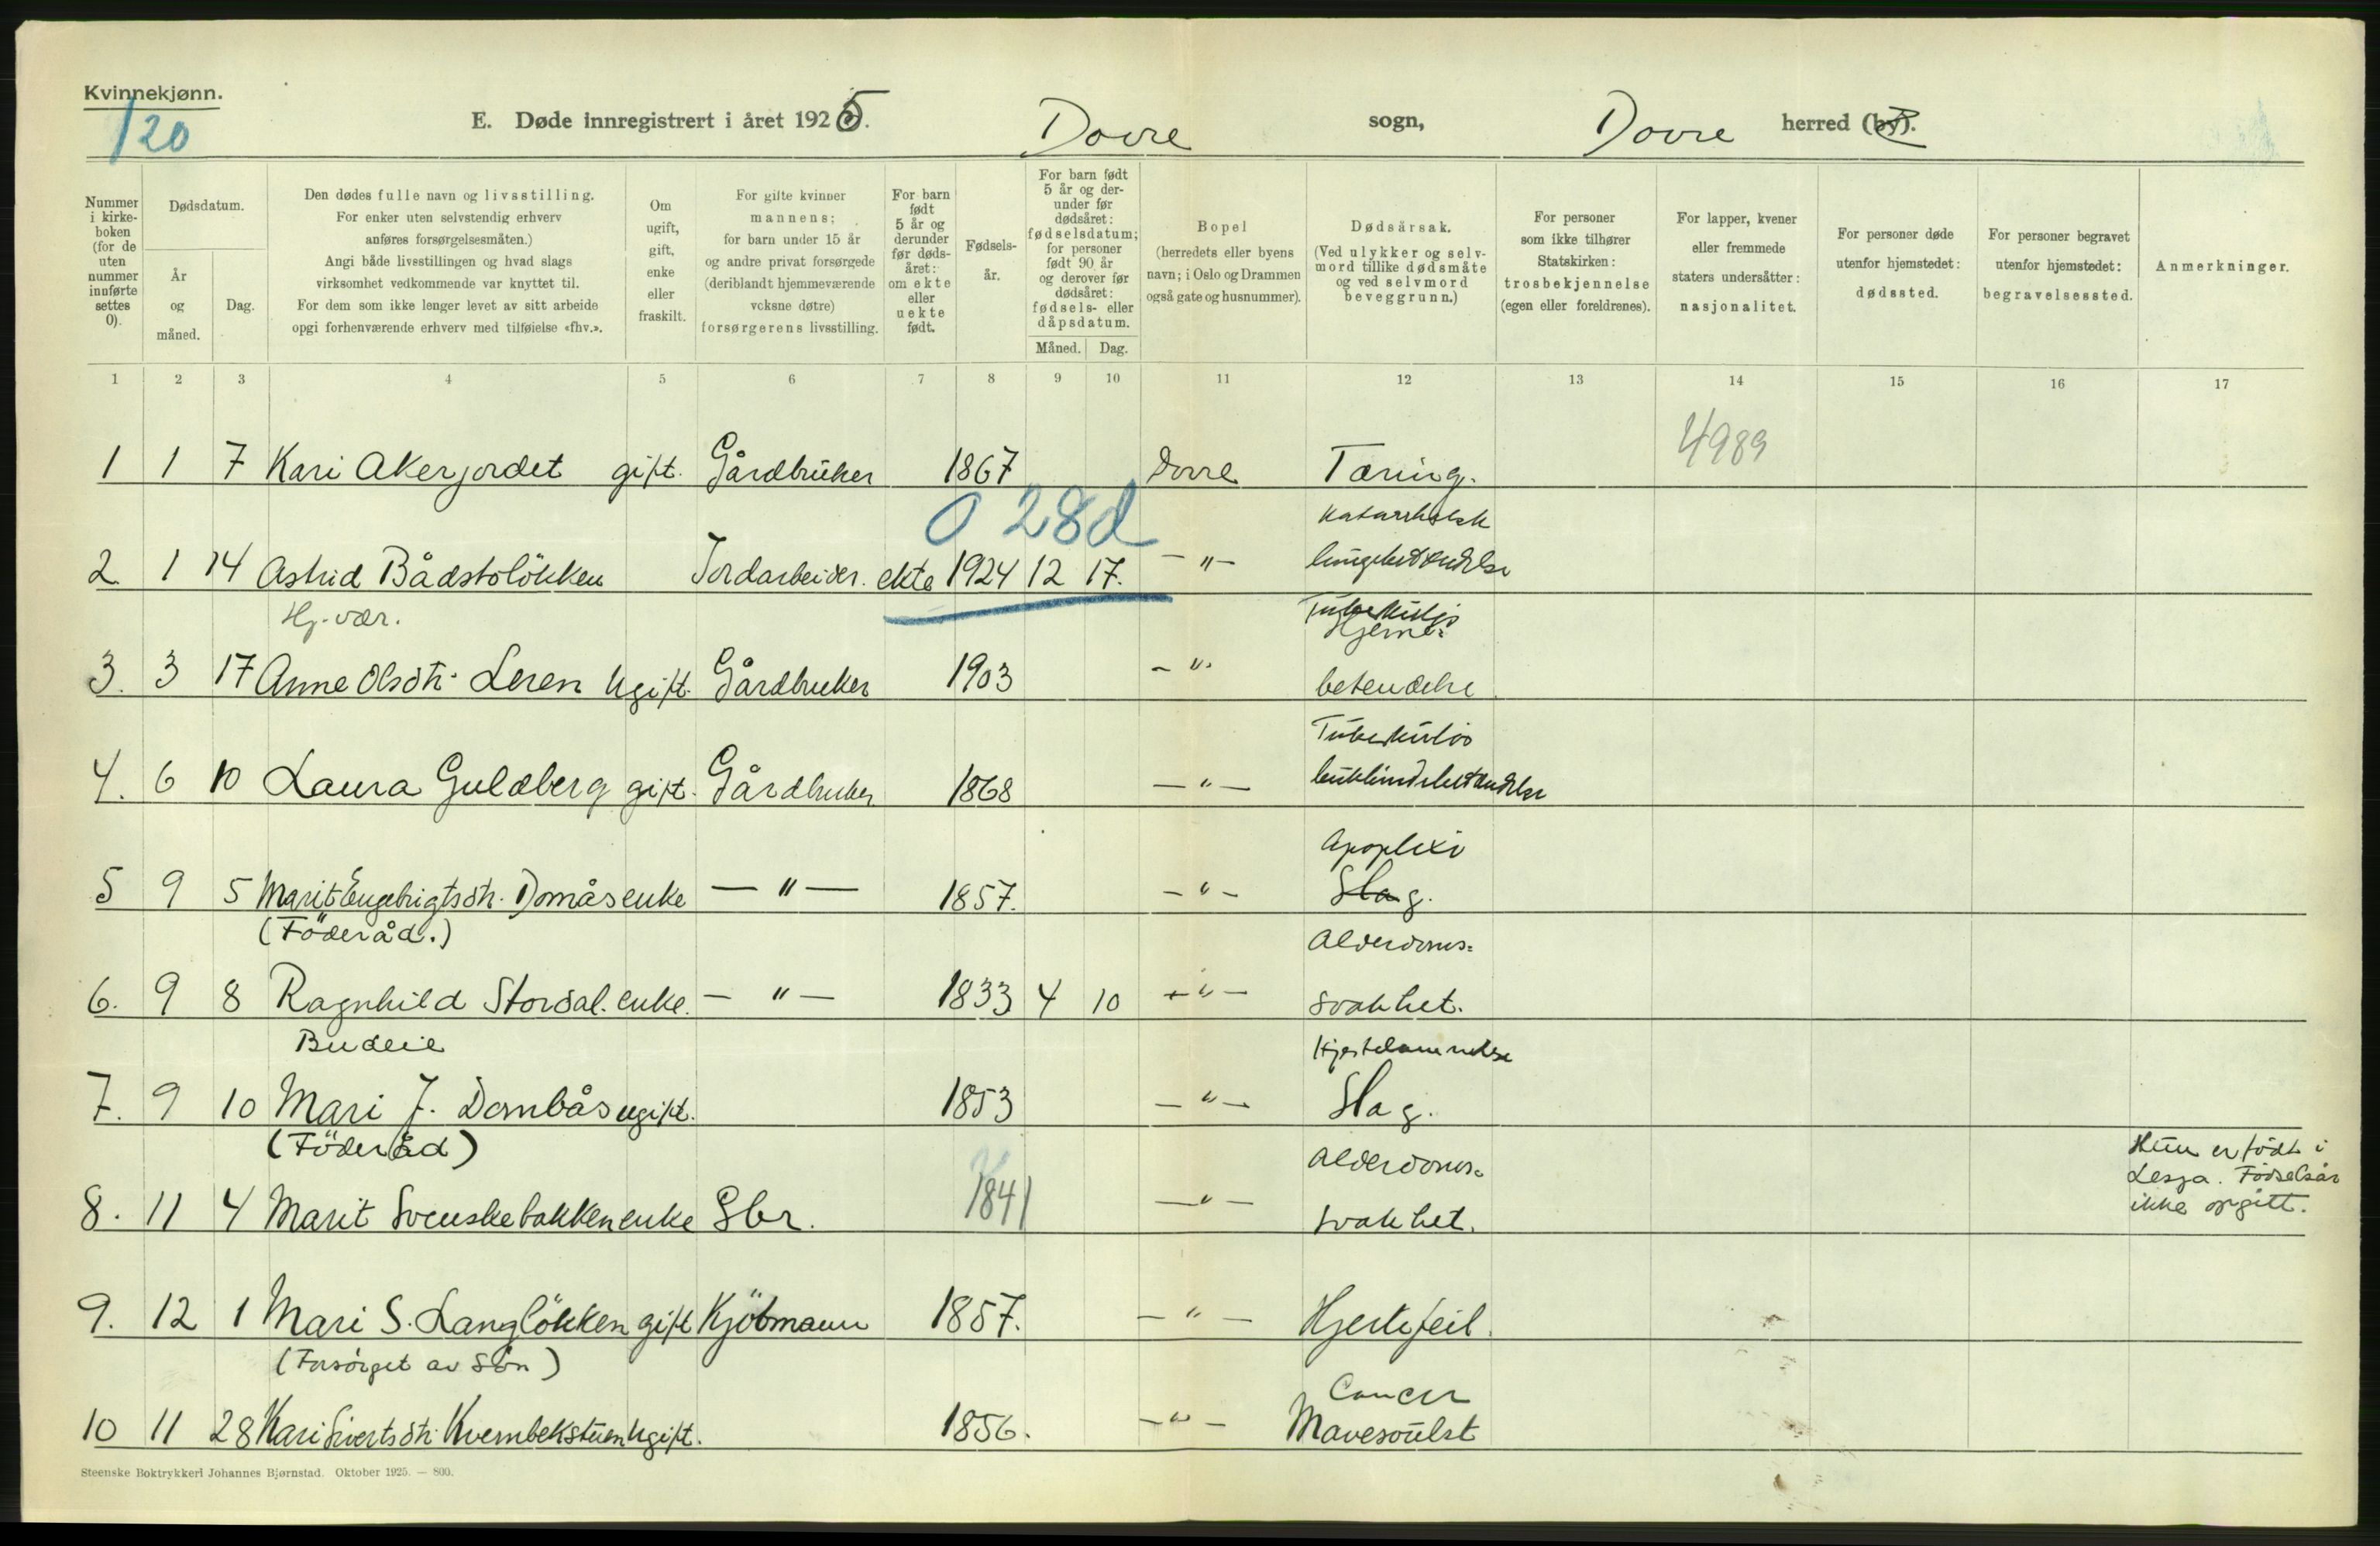 Kvinnekjønn.
120
E. Døde innregistrert i året 1925. Dovre sogn, Dovre herred (by).
Nummer i kirkeboken (for de uten nummer innførte settes 0).
Dødsdatum.
År og måned.
Dag.
Den dødes fulle navn og livsstilling.
For enker uten selvstendig erhverv
anføres forsørgelsesmåten.)
Angi både livsstillingen og hvad slags
virksomhet vedkommende var knyttet til.
For dem som ikke lenger levet av sitt arbeide
opgi forhenværende erhverv med tilføielse «fhv.».
Om ugift, gift, enke eller fraskilt.
For gifte kvinner
mannens;
for barn under 15 år
og andre privat forsørgede
(deriblandt hjemmeværende
voksne døtre)
forsørgerens livsstilling.
For barn født 5 år og derunder før dødsåret: om ekte eller uekte født.
Fødselsår.
For barn født 5 år og derunder før dødsåret: fødselsdatum; for personer født 90 år og derover før dødsåret: fødsels- eller dåpsdatum.
Måned. Dag.
Bopel
(herredets eller byens
navn; i Oslo og Drammen
også gate og husnummer).
Dødsårsak.
(Ved ulykker og selvmord tillike dødsmåte og ved selvmord beveggrunn.)
For personer
som ikke tilhører
Statskirken:
trosbekjennelse
(egen eller foreldrenes).
For lapper, kvener
eller fremmede
staters undersåtter:
nasjonalitet.
For personer døde
utenfor hjemstedet:
dødssted.
For personer begravet
utenfor hjemstedet:
begravelsessted.
Anmerkninger.
1 2 3 4 5 6 7 8 9 10 11 12 13 14 15 16 17
4989
1 1 7 Kari Akerjordet gift. Gårdbruker 1867 Dovre Tæring.
0 28d
Katarrhalsk
2. 1 14 Astrid Bådstolökken Jordarbeider. ekte 1924 12 17. — " — lungebetændelse
Hj. vær.
Tuberkuløs
Hjerne=
3. 3 17 Anne Olsdtr. Leren Ugift. Gårdbruker 1903 — " betendelse
Tuberkuløs
4. 6 10 Laura Guldberg gift. Gårdbruker 1868 — " — bukhindebetændelse
Apoplexi
5 9 5 Marit Engebrigtsdtr. Domås enke — " — 1857. — " — Slag.
(Föderåd.)
Alderdoms=
6. 9 8 Ragnhild Stordal. enke. — " — 1833 4 10 — " — svakhet.
Budeie
Hjertelammelse
7. 9 10 Mari J. Dombås ugift. 1853 — " — Slag.
(Föderåd)
Alderdoms=
Hun er födt i
Lesja. Födselsår
ikke opgitt.
8. 11 4 Marit Svenskebakken enke Gbr. 1841 — " — svakhet.
9. 12 1 Mari S. Langlökken gift Kjöbmann 1857. — " — Hjertefeil.
(Forsörget av Sön)
Cancer
10 11 28 Kari Sivertsdtr. Kvembekstuen Ugift. 1856. — " — Mavesvulst
Steenske Boktrykkeri Johannes Bjørnstad. Oktober 1925. — 800.